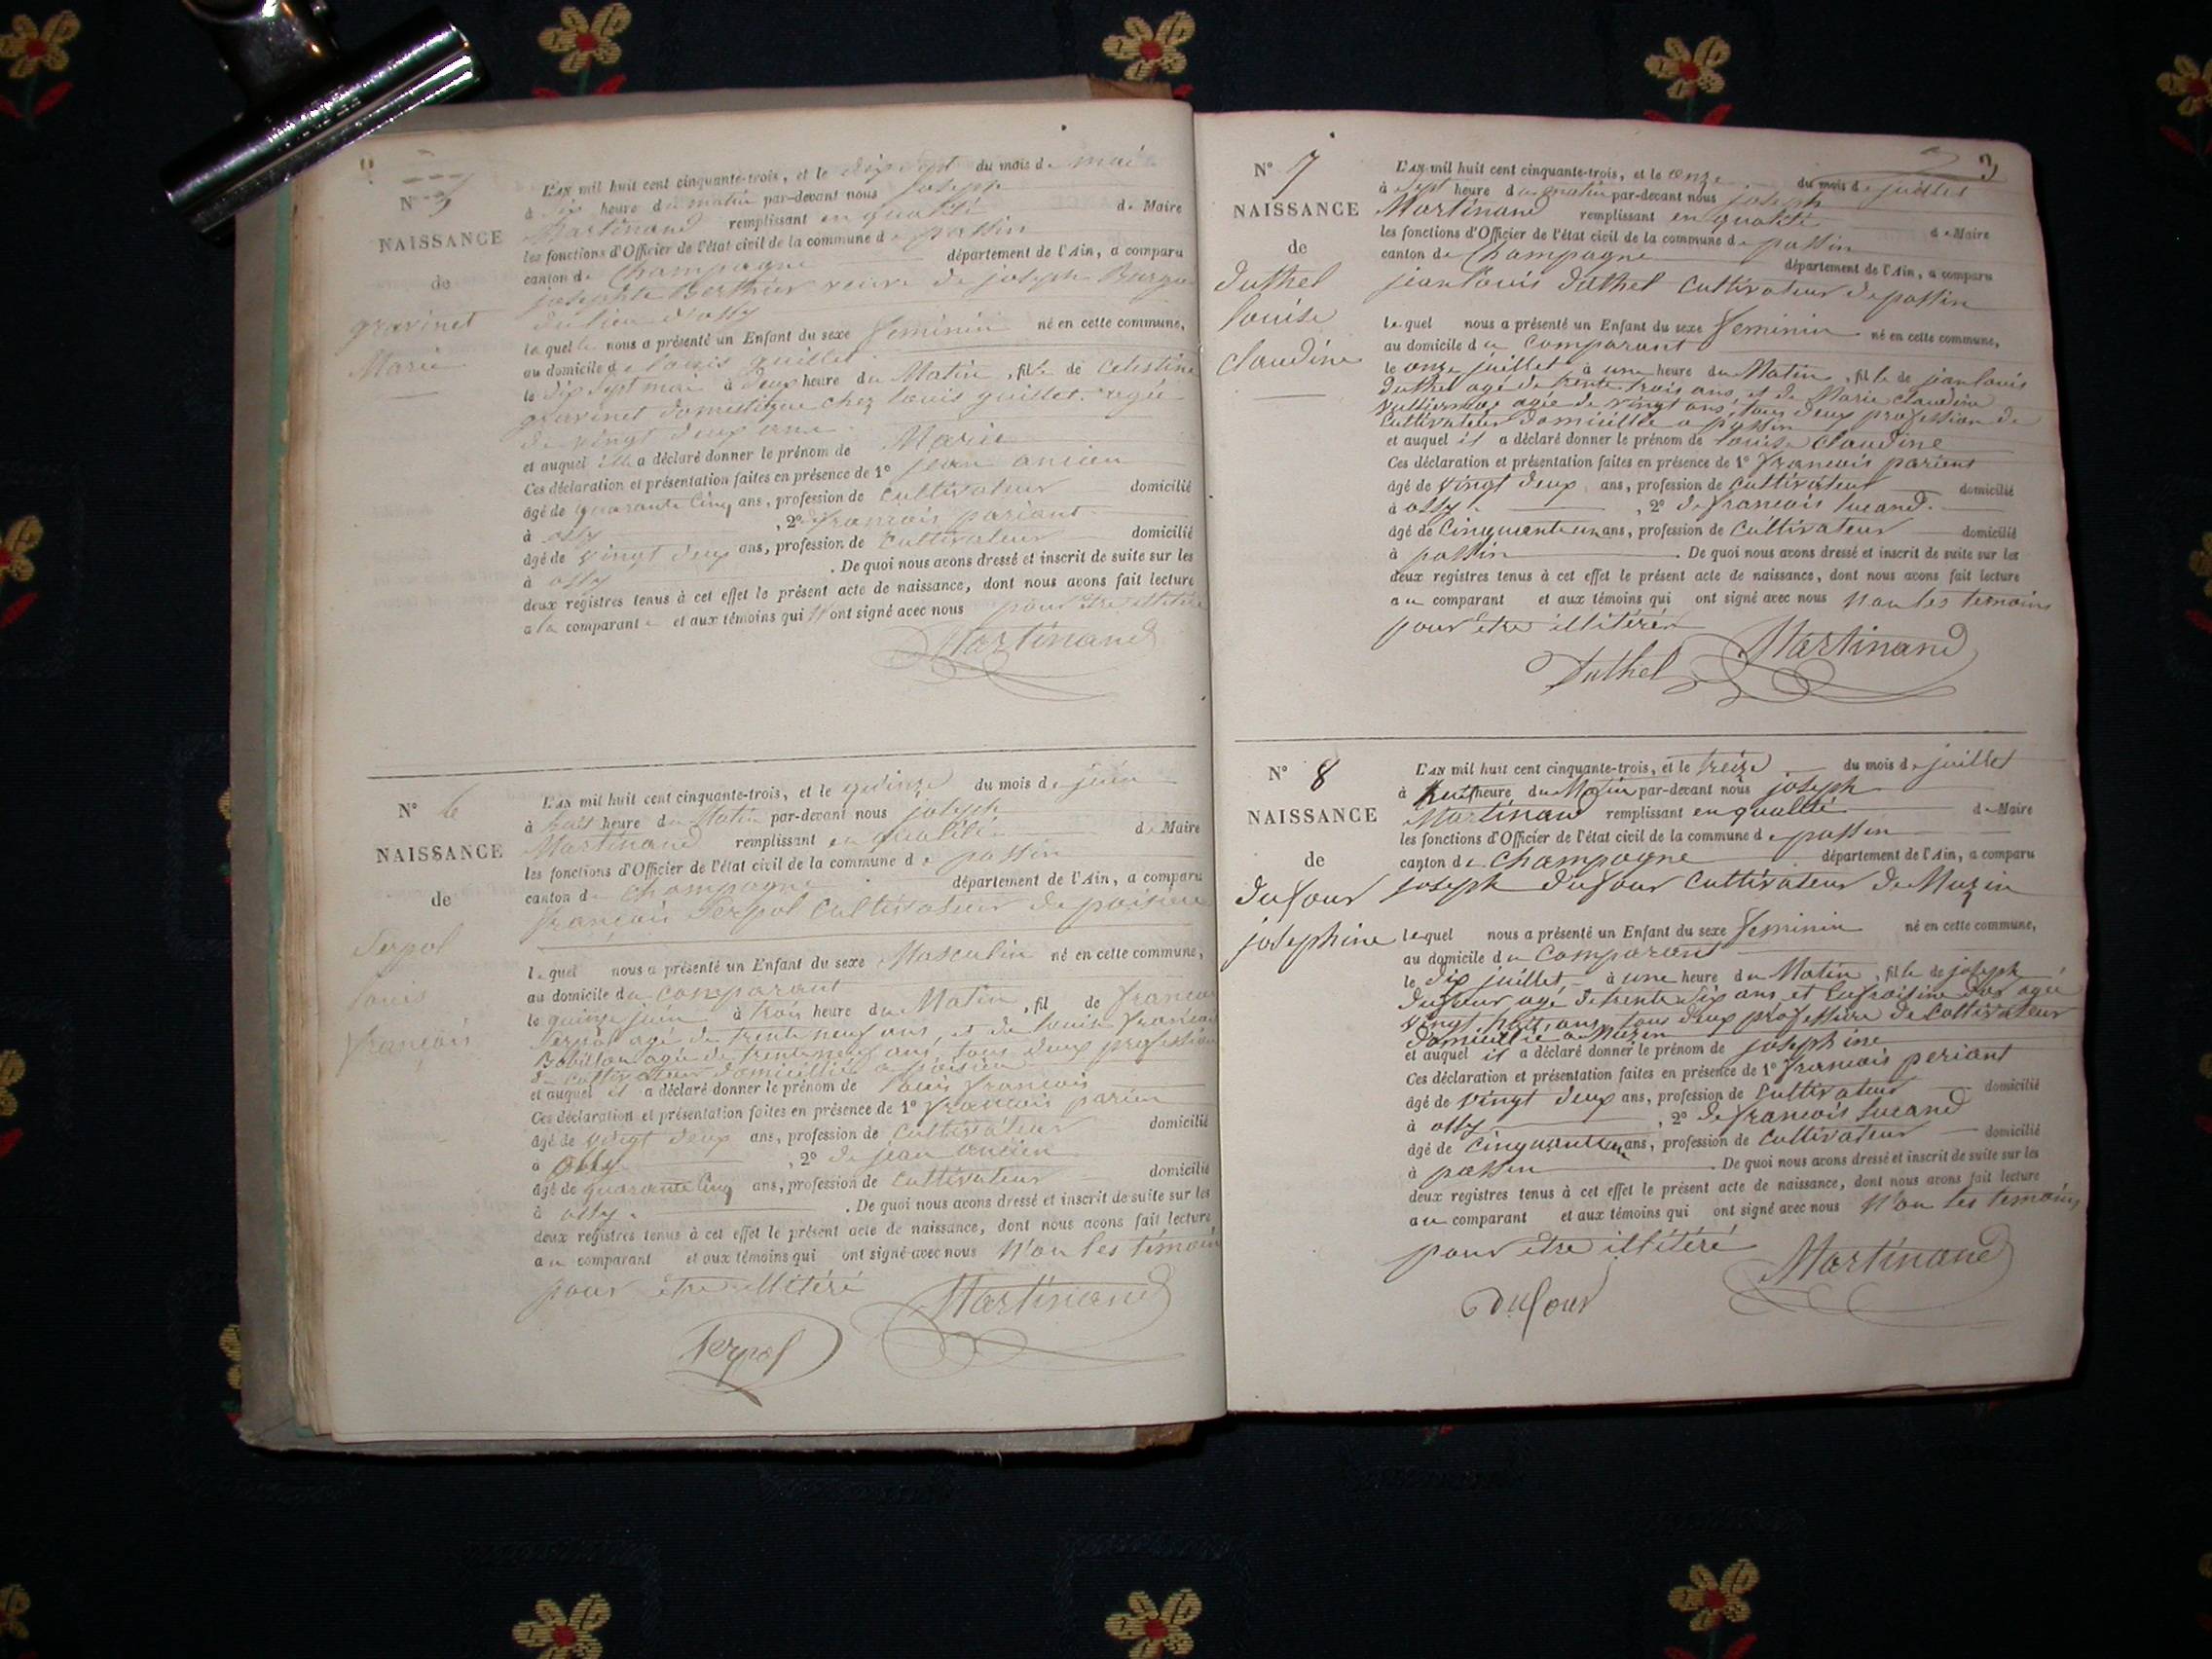 N° 5
NAISSANCE
de
gravinet
Marie
L'AN mil huit cent cinquante-trois, et le dix sept du mois de mai
à dix heure du matin par-devant nous joseph
Martinand remplissant en qualité de Maire
les fonctions d'Officier de l'état civil de la commune de passin
canton de Champagne département de l'Ain, a comparu
josephte Berthier veuve de joseph
du lieu d'ossy
le quelle nous a présenté un Enfant du sexe feminin né en cette commune,
au domicile de louis guillet
le dix sept mai à deux heure du Matin, fille de Celestine
gravinet domestique chez louis guillet agée
de vingt deux ans
et auquel elle a déclaré donner le prénom de Marie
Ces déclaration et présentation faites en présence de 1° jean ancien
âgé de quarante cinq ans, profession de cultivateur domicilié
à ossy , 2° de francois pariant
âgé de vingt deux ans, profession de cultivateur domicilié
à ossy . De quoi nous avons dressé et inscrit de suite sur les
deux registres tenus à cet effet le présent acte de naissance, dont nous avons fait lecture
a la comparante et aux témoins qui n'ont signé avec nous pour être illitéré
Martinand
N° 6
NAISSANCE
de
Serpol
louis
francois
L'AN mil huit cent cinquante-trois, et le quinze du mois de juin
à huit heure du Matin par-devant nous joseph
Martinand remplissant en qualité de Maire
les fonctions d'Officier de l'état civil de la commune de passin
canton de Champagne département de l'Ain, a comparu
francois Serpol cultivateur de poisieu
lequel nous a présenté un Enfant du sexe Masculin né en cette commune,
au domicile du comparant
le quinze juin à trois heure du Matin, fil de francois
Serpol agé de trente neuf ans, et de louise
agée de trente neuf ans, tous deux profession
de cultivateur domicillié a poisieu
et auquel il a déclaré donner le prénom de louis francois
Ces déclaration et présentation faites en présence de 1° francois parien
âgé de vingt deux ans, profession de cultivateur domicilié
à ossy , 2° de jean ancien
âgé de quarante cinq ans, profession de cultivateur domicilié
à ossy . De quoi nous avons dressé et inscrit de suite sur les
deux registres tenus à cet effet le présent acte de naissance, dont nous avons fait lecture
au comparant et aux témoins qui ont signé avec nous N'on les témoin
pour être illitéré
Martinand
Serpol
3
N° 7
NAISSANCE
de
Duthel
louise
claudine
L'AN mil huit cent cinquante-trois, et le onze du mois de juillet
à sept heure du matin par-devant nous joseph
Martinand remplissant en qualité de Maire
les fonctions d'Officier de l'état civil de la commune de passin
canton de Champagne département de l'Ain, a comparu
jean louis duthel cultivateur de passin
lequel nous a présenté un Enfant du sexe feminin né en cette commune,
au domicile du comparant
le onze juillet à une heure du Matin, fille de jean louis
duthel agé de trente trois ans, et de Marie claudine
agée de vingt ans, tous deux profession de
cultivateur domicillié a passin
et auquel il a déclaré donner le prénom de louise claudine
Ces déclaration et présentation faites en présence de 1° francois pariant
âgé de vingt deux ans, profession de cultivateur domicilié
à ossy , 2° de francois lucand
âgé de cinquante un ans, profession de cultivateur domicilié
à passin . De quoi nous avons dressé et inscrit de suite sur les
deux registres tenus à cet effet le présent acte de naissance, dont nous avons fait lecture
au comparant et aux témoins qui ont signé avec nous N'on les temoins
pour être illitéré
Duthel Martinand
N° 8
NAISSANCE
de
dufour
josephine
L'AN mil huit cent cinquante-trois, et le treize du mois de juillet
à huit heure du Matin par-devant nous joseph
Martinand remplissant en qualité de Maire
les fonctions d'Officier de l'état civil de la commune de passin
canton de Champagne département de l'Ain, a comparu
joseph dufour cultivateur de Muzin
lequel nous a présenté un Enfant du sexe feminin né en cette commune,
au domicile du comparant
le dix juillet, à une heure du Matin, fille de joseph
dufour agé de trente dix ans et agée
vingt huit ans, tous deux professure de cultivateur
domicillié a Muzin
et auquel il a déclaré donner le prénom de josephine
Ces déclaration et présentation faites en présence de 1° francois periant
âgé de vingt deux ans, profession de cultivateur domicilié
à ossy , 2° de francois lucand
âgé de cinquante un ans, profession de cultivateur domicilié
à passin . De quoi nous avons dressé et inscrit de suite sur les
deux registres tenus à cet effet le présent acte de naissance, dont nous avons fait lecture
au comparant et aux témoins qui ont signé avec nous N'on les temoins
pour être illitéré
Martinand
Dufour